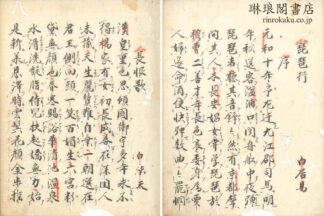 琳琅閣書店
rinrokaku.co.jp
琵琶行
序
白居易
元和十年予左遷九江郡司馬明
年秋送客湓浦口聞舟船中夜彈
琵琶者聽其音錚々然有京都聲
問其人本長安倡女嘗學琵琶於
穆曹二善才年長色衰委身爲賈
人婦遂命酒使快彈數曲々罷憫
長恨歌
白樂天
漢皇重色思傾國御宇多年求不
得楊家有女初長成養在深閨人
未識天生麗質難自棄一朝選在
君王側回頭一笑百媚生六宮粉
黛無顔色春寒賜浴華清池温泉
水滑洗凝脂侍兒扶起嬌無力始
是新承恩澤時雲鬢花顔金步搖